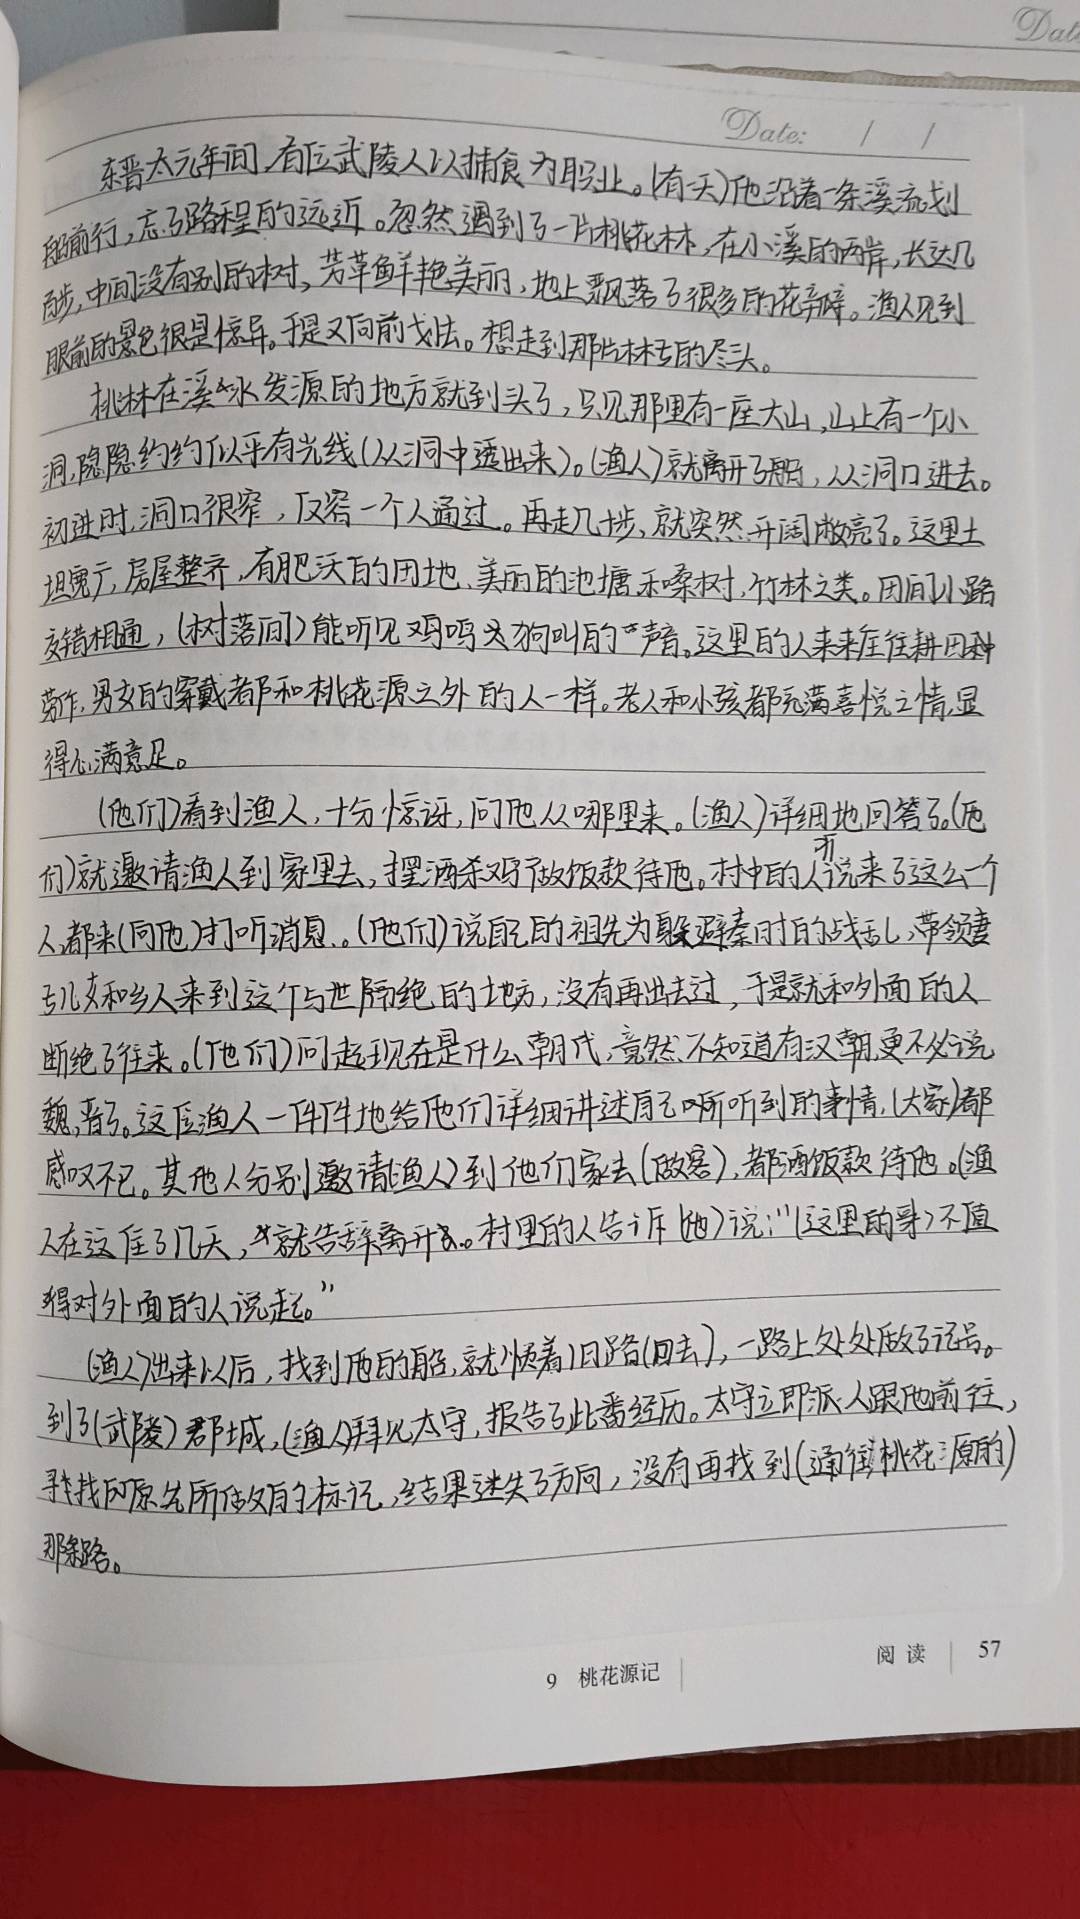 Date
Date: / /
东晋太元年间,有位武陵人以捕食为职业。(有天)他沿着一条溪流划
船前行,忘了路程的远近。忽然遇到了一片桃花林,在小溪的两岸,长达几
百步,中间没有别的树,芳草鲜艳美丽,地上飘落了很多的花瓣。渔人见到
眼前的景色很是惊异。于是又向前划去。想走到那片林子的尽头。
桃林在溪水发源的地方就到头了,只见那里有一座大山,山上有一个小
洞,隐隐约约似乎有光线(从洞中透出来)。(渔人)就离开了船,从洞口进去。
初进时,洞口很窄,仅容一个人通过。再走几十步,就突然开阔敞亮了。这里土
坦宽广,房屋整齐,有肥沃的田地、美丽的池塘和嗓树,竹林之类。田间小路
交错相通,(树落间)能听见鸡鸣狗叫的声音。这里的人来来往往耕田种
劳作,男女的穿戴都和桃花源之外的人一样。老人和小孩都充满喜悦之情,显
得心满意足。
(他们)看到渔人,十分惊讶,问他从哪里来。(渔人)详细地回答了。(他
们)就邀请渔人到家里去,摆酒杀鸡做饭款待他。村中的人听说来了这么一个
人,都来(向他)打听消息。(他们)说自己的祖先为躲避秦时的战乱,带领妻
子儿女和乡人来到这个与世隔绝的地方,没有再出去过,于是就和外面的人
断绝了往来。(他们)问起现在是什么朝代,竟然不知道有汉朝,更不必说
魏,晋了。这位渔人一件件地给他们详细讲述自己所听到的事情,(大家)都
感叹不已。其他人分别邀请(渔人)到他们家去(做客),都酒饭款待他。(渔
人在这住了几天,就告辞离开。村里的人告诉(他)说:"(这里的事)不值
得对外面的人说起。"
(渔人)出来以后,找到他的船,就顺着旧路(回去),一路上处处做了记号。
到了(武陵)郡城,(渔人)拜见太守,报告了此番经历。太守立即派人跟他前往,
寻找原先所做的标记,结果迷失了方向,没有再找到(通往桃花源的)
那条路。
9 桃花源记
阅读 57